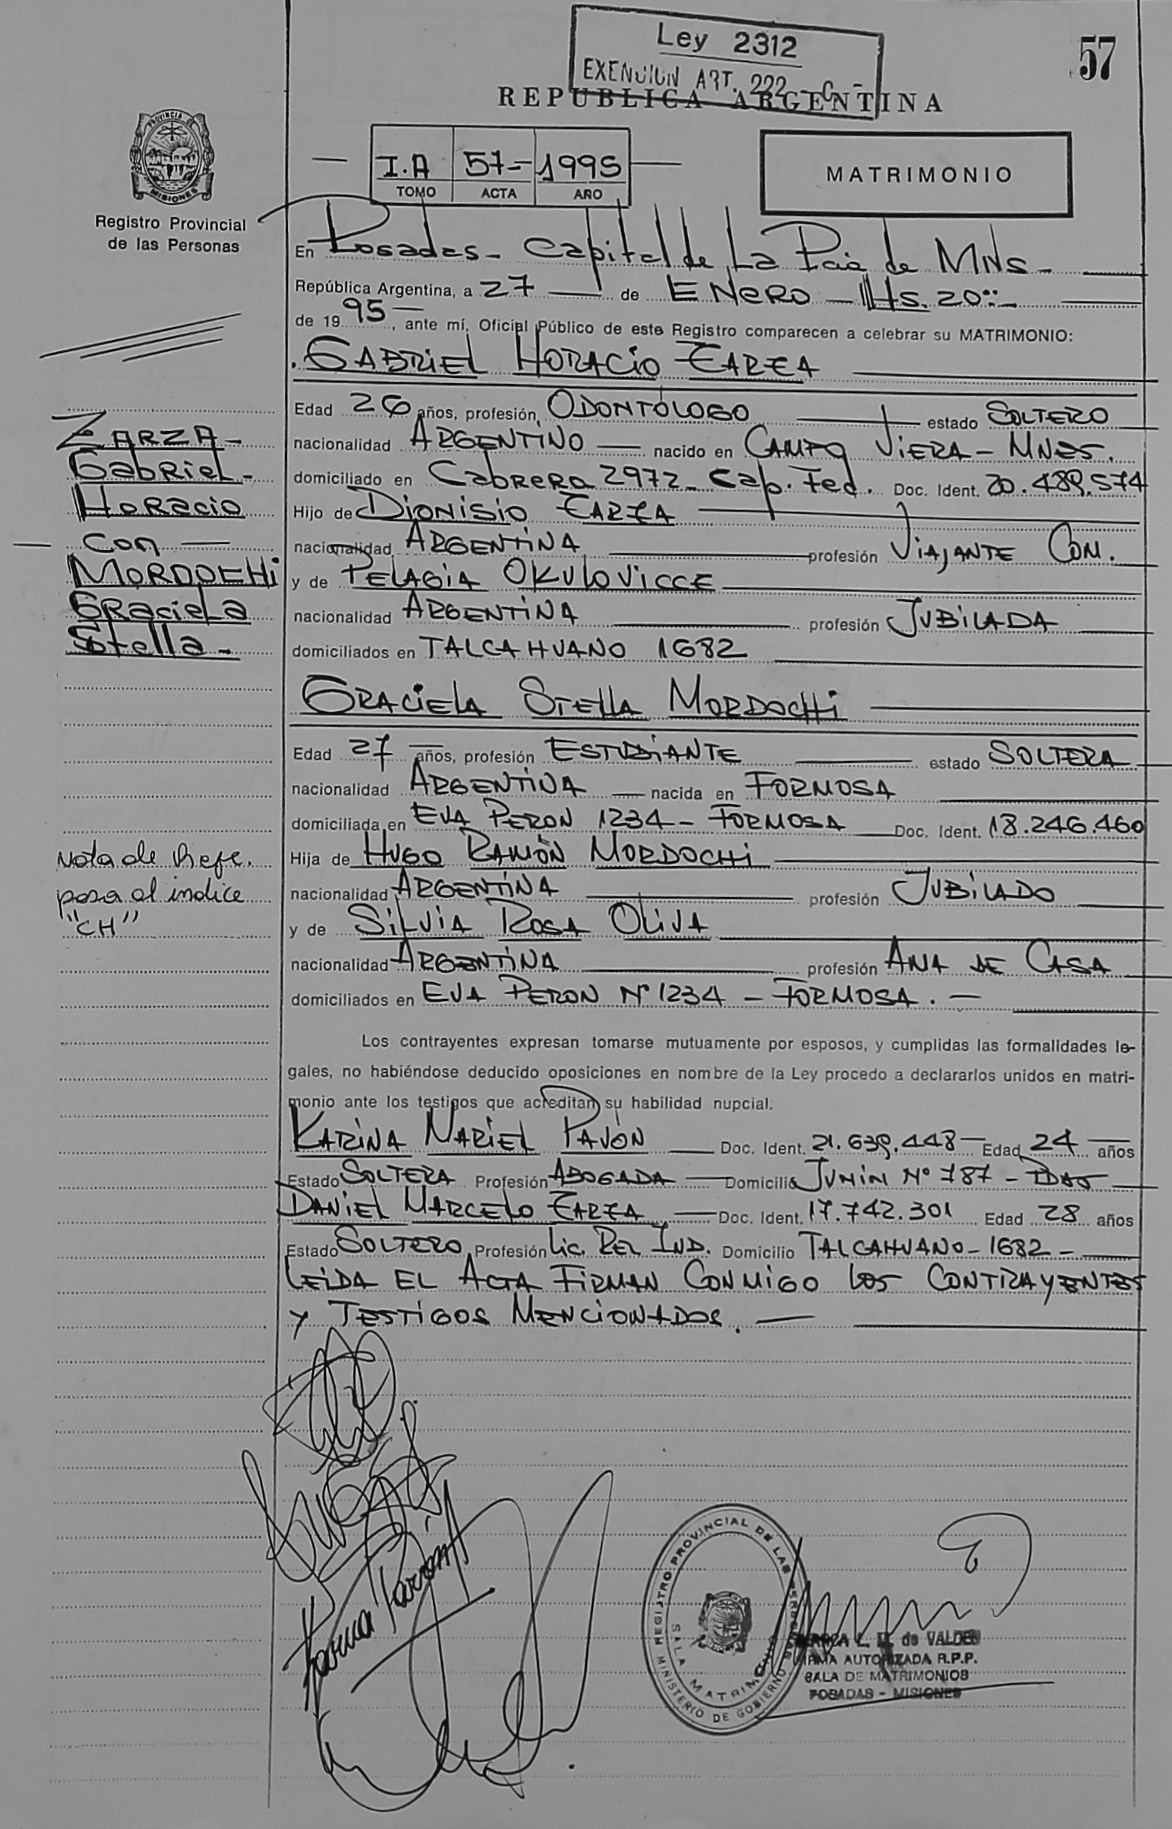 Ley 2312
EXENCION ART. 222 - C -
57
REPUBLICA ARGENTINA
PROVINCIA DE MISIONES
Registro Provincial
de las Personas
I.A 57- 1995
TOMO ACTA AÑO
MATRIMONIO
En Posadas - Capital de La Pcia de MNS -
República Argentina, a 27 de ENERO - Hs. 20:: -
de 1995, ante mí, Oficial Público de este Registro comparecen a celebrar su MATRIMONIO:
GABRIEL HORACIO ZARZA
Edad 26 años, profesión ODONTÓLOGO estado SOLTERO
nacionalidad ARGENTINO nacido en CAMPO VIERA - MNES.
domiciliado en Cabrera 2972 - Cap. Fed. Doc. Ident. 20.489.574
Hijo de DIONISIO ZARZA
nacionalidad ARGENTINA profesión VIAJANTE COM.
y de PELAGIA OKULOVICCE
nacionalidad ARGENTINA profesión JUBILADA
domiciliados en TALCAHUANO 1682
ZARZA -
Gabriel -
Horacio
- con -
MORDOCHI
Graciela
Stella -
GRACIELA STELLA MORDOCHI
Edad 27 años, profesión ESTUDIANTE estado SOLTERA
nacionalidad ARGENTINA nacida en FORMOSA
domiciliada en EVA PERON 1234 - FORMOSA Doc. Ident. 18.246.460
Hija de HUGO RAMÓN MORDOCHI
nacionalidad ARGENTINA profesión JUBILADO
y de SILVIA ROSA OLIVA
nacionalidad ARGENTINA profesión AMA DE CASA
domiciliados en EVA PERON Nº 1234 - FORMOSA. -
Nota de Refe.
para el indice
"CH"
Los contrayentes expresan tomarse mutuamente por esposos, y cumplidas las formalidades le-
gales, no habiéndose deducido oposiciones en nombre de la Ley procedo a declararlos unidos en matri-
monio ante los testigos que acreditan su habilidad nupcial.
KARINA MARIEL PAVÓN Doc. Ident. 21.639.448 Edad 24 años
Estado SOLTERA Profesión ABOGADA Domicilio JUNIN Nº 787 - PDAS
DANIEL MARCELO ZARZA Doc. Ident. 17.742.301 Edad 28 años
Estado SOLTERO Profesión Lic. REL IND. Domicilio TALCAHUANO - 1682 -
LEIDA EL ACTA FIRMAN CONMIGO LOS CONTRAYENTES
Y TESTIGOS MENCIONADOS. -
Karina Pavón
REGISTRO PROVINCIAL DE LAS PERSONAS
SALA MATRIMONIO
MINISTERIO DE GOBIERNO
de VALDES
FIRMA AUTORIZADA R.P.P.
SALA DE MATRIMONIOS
POSADAS - MISIONES